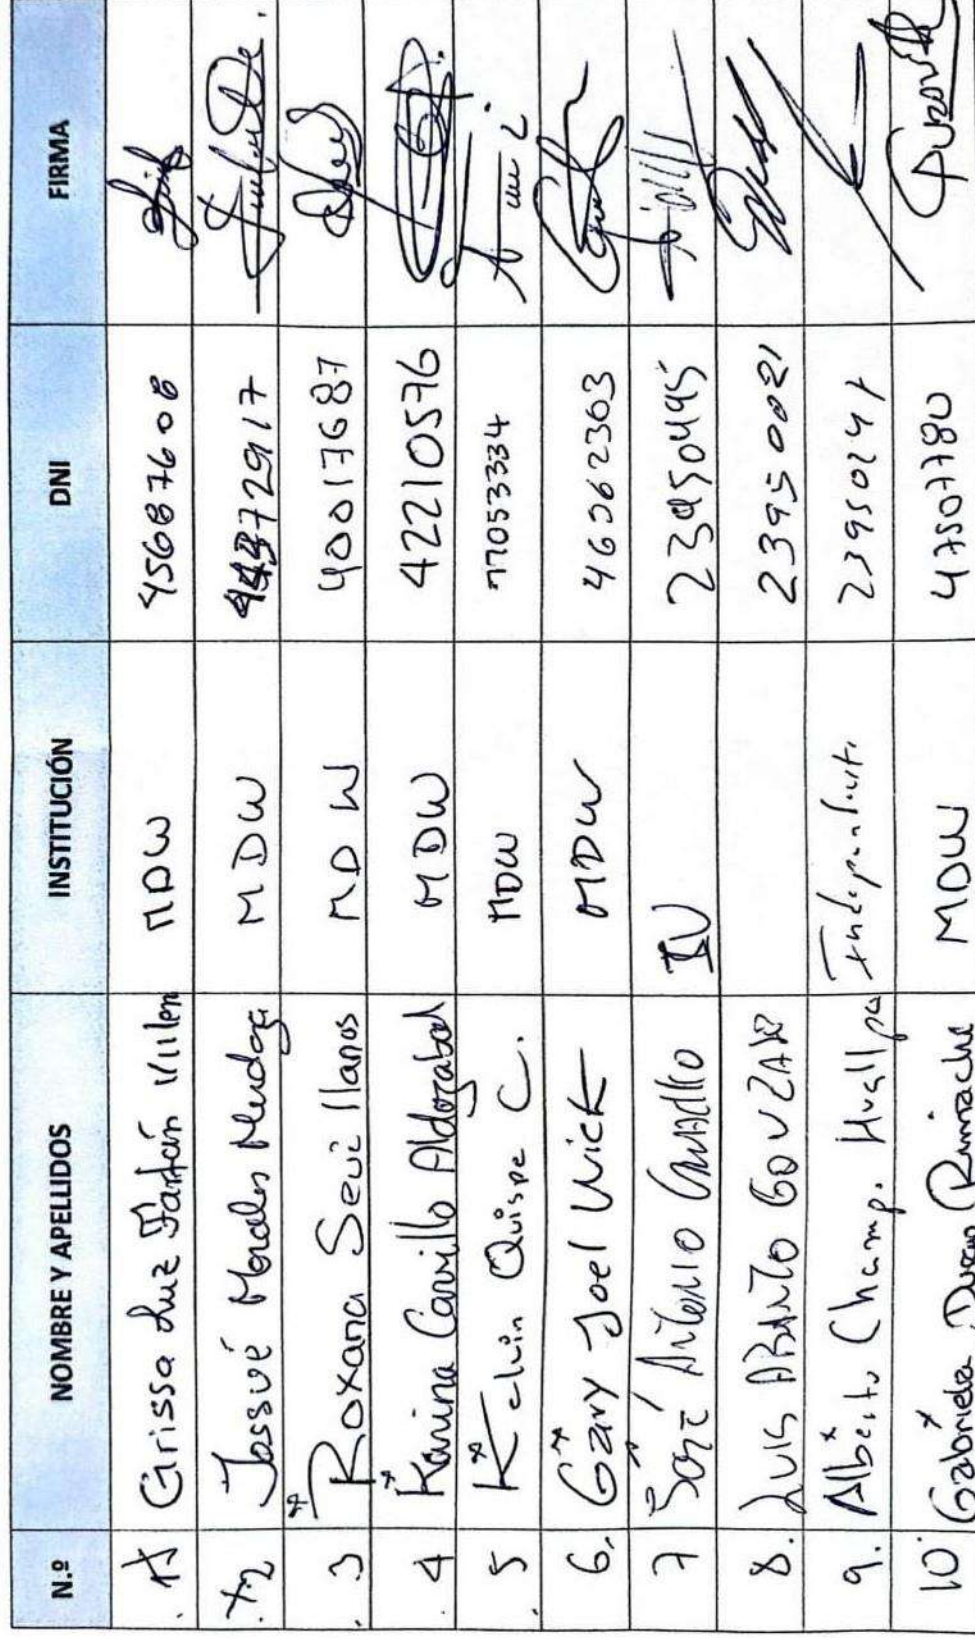 N.º NOMBRE Y APELLIDOS INSTITUCIÓN DNI FIRMA
1 Girissa Luz Farfán Villen MDW 45687608
2 Jossué Morales Mendoza MDW 72917
3 Roxana Seui llanos MDW 40017687
4 Karina Carrillo Aldazabal MDW 42210576
5 Kelvin Quispe C. MDW 77053334
6. Gary Joel Vick MDW 46062303
7 José Antonio IV 23950495
8. Luis 23950021
9. Alberto Champ. Huallpa Independiente 23950241
10. Gabriela Duran Rimachi MDW 47507780